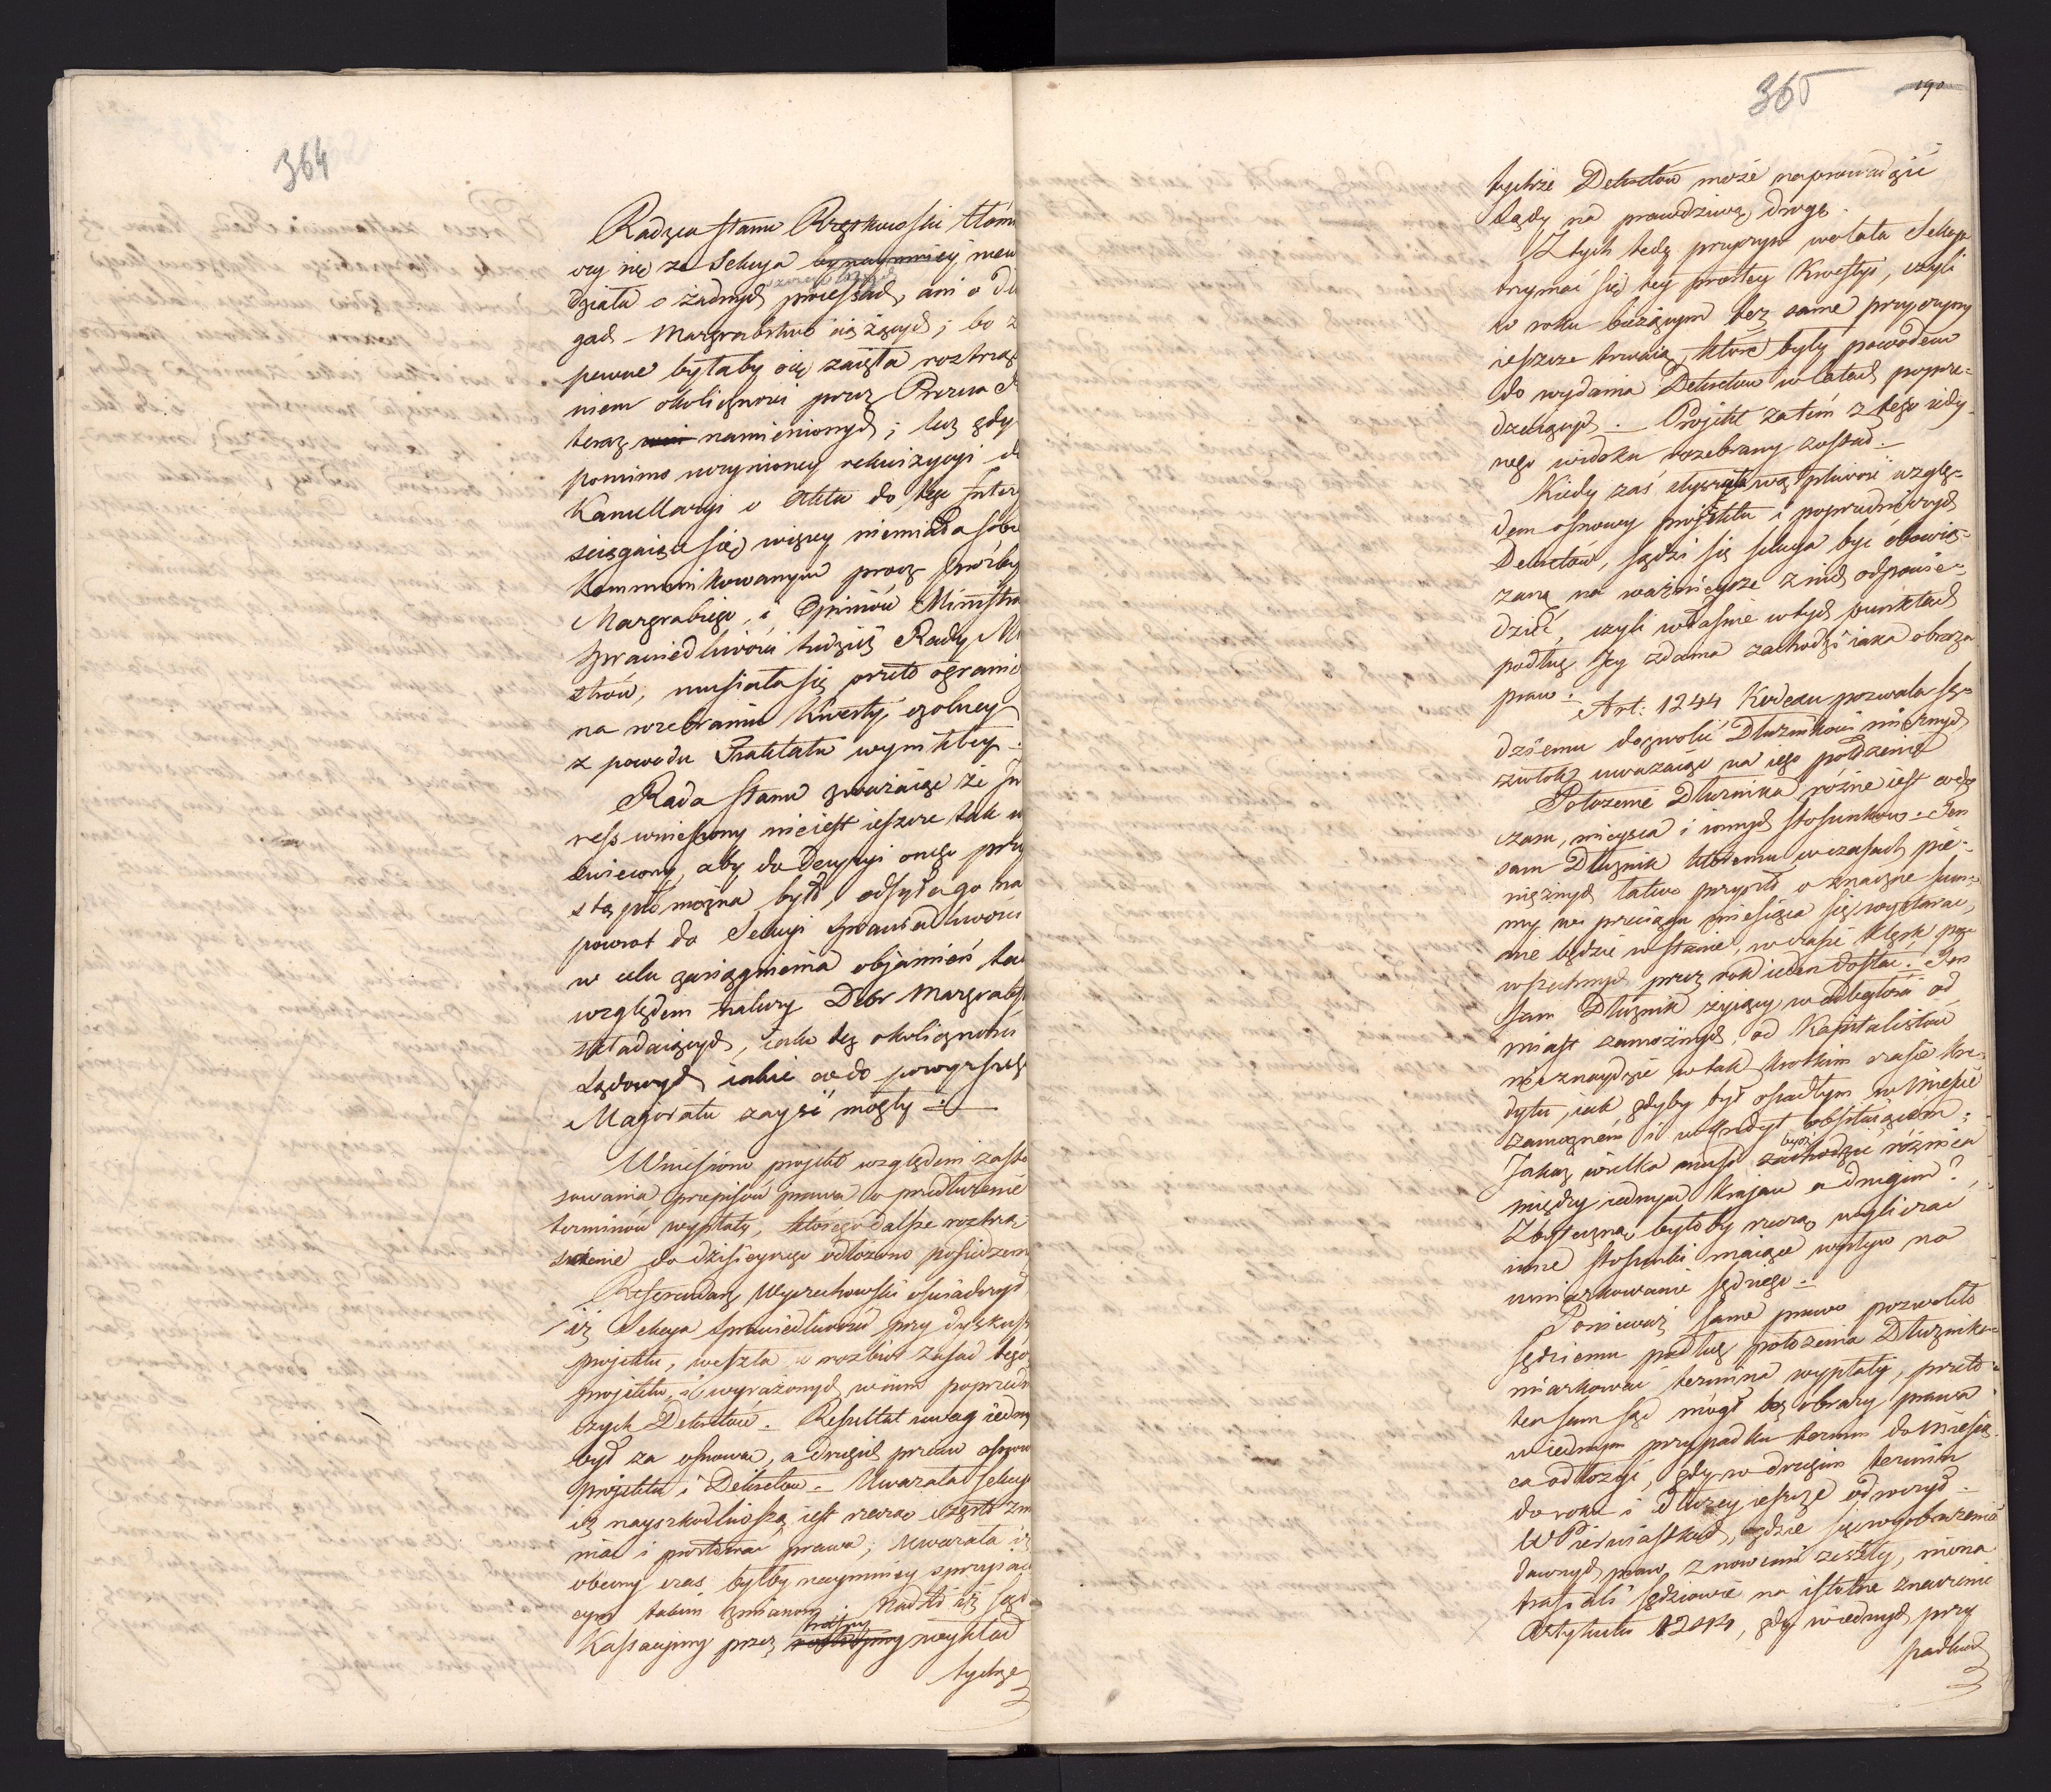 364
Radzca Stanu Rzętkowski tłóma
czy się że Sekcya bynaymniey niew
działa o żadnych processach, ani o dłu
gach Margrabstwo ciążących; bo z
pewne byłaby się zaięła roztrząś
niem okoliczności przez Prezesa
teraz namienionych; lecz gdy
pomimo uczynioney rekwizycyi do
Kancellaryi o Akta do tego Inter
ściągaiące się, więcey niemiała sobie
kommunikowanym procz prozby
Margrabiego, i Opiniów Ministra
Sprawiedliwości tudzież Rady Mi
strów, musiała się przeto ogranic
na rozebraniu kwestyi, ogólney
z powodu Traktatu wynikłey.
Rada Stanu zważaiąc że In
ress wniesiony nieiest ieszcze tak w
świecony, aby do Decyzyi onego przy
stąpić można było, odsyła go na
powrot do Sekcyi Sprawiedliwości
w celu zasiągnienia objaśnień ta
względem natury Dóbr Margrabst
składaiących, iako też okoliczności
Sądowych iakie co do powyższego
Majoratu zayść mogły.
Wniesiono projekt względem zasto
sowania przepisów prawa o przedłużenie
terminów wypłaty, którego dalsze roztrzą
śnienie do dzisieyszego odłożono posiedzenia
Referendarz Wyczechowski oświadczył
iż Sekcya Sprawiedliwości przy dyskussyi
projektu, weszła w rozbiór zasad tego
projektu, i wyrażonych w nim poprzedni
czych Dekretów. Resultat uwag iednych
był za osnową, a drugich przeciw osnowie
projektu i Dekretów. Uważała Sekcya
iż nayszkodliwszą iest rzeczą często zmi
niać i prostować prawa; uważała iż
obecny czas byłby naymniey sprzyiaią
cym takim zmianom. Nadto iż Sąd
Kassacyiny przez trafny wykład
tychże
365
190
tychże Dekretów może naprowadzić
Sądy na prawdziwą drogę.
Z tych tedy przyczyn wolała Sekcya
trzymać się tey prostey kwestyi, czyli
w roku bieżącym też same przyczyny
ieszcze trwaią, które były powodem
do wydania Dekretów w latach poprze=
dzaiących. Projekt zatém z tego iedy=
nego widoku rozebrany został.
Kiedy zaś wątpliwość wzglę=
dem osnowy projektu i poprzedniczych
Dekretów, sądzi się Sekcya być obowią=
zaną na ważnieysze z nich odpowie=
dzieć, czyli właśnie w tych punktach
podług Jey zdania zachodzi iaka obraza
praw.
Art: 1244 Kodexu pozwala Sę=
dziemu dozwolić Dłużnikowi miernych
zwłok uważaiąc na iego położenie
Położenie Dłużnika różne iest wedle
czasu, mieysca i innych stosunków. Ten
sam Dłużnik któremu w czasach pie=
niężnych łatwo przyszło o znaczne sum=
my w przeciągu miesiąca się wystarać,
nie będzie w stanie, w czasie klęsk po=
wszechnych przez rok ieden dostać. Ten
sam Dłużnik żyiący w odległości od
miast zamożnych, od Kapitalistów
nieznaydzie w tak krótkim czasie kre=
dytu, iak gdyby był osiadłym w mieście
zamożném i w kredyt obfituiącém.
Jakaż wielka musi bydź różnica
między iednym kraiem a drugim?
Zbyteczną byłoby rzeczą wyliczać
inne stosunki maiące wpływ na
umiarkowanie sędziego.
Ponieważ same prawo pozwoliło
Sędziemu podług położenia Dłużnika
miarkować termina wypłaty, przeto
ten sam sąd mógł bez obrazy prawa
w iednym przypadku termin do miesią
ca odłożyć, gdy w drugim termin
do roku i dłużey ieszcze odwrócił.
W Pierwiastkach, gdzie się wyobrażenie
dawnych praw, z nowemi zeszły, nienа
trafiali sędziowie na istotne znaczenie
Artykułu 1244, gdy w iednych przy
padkach